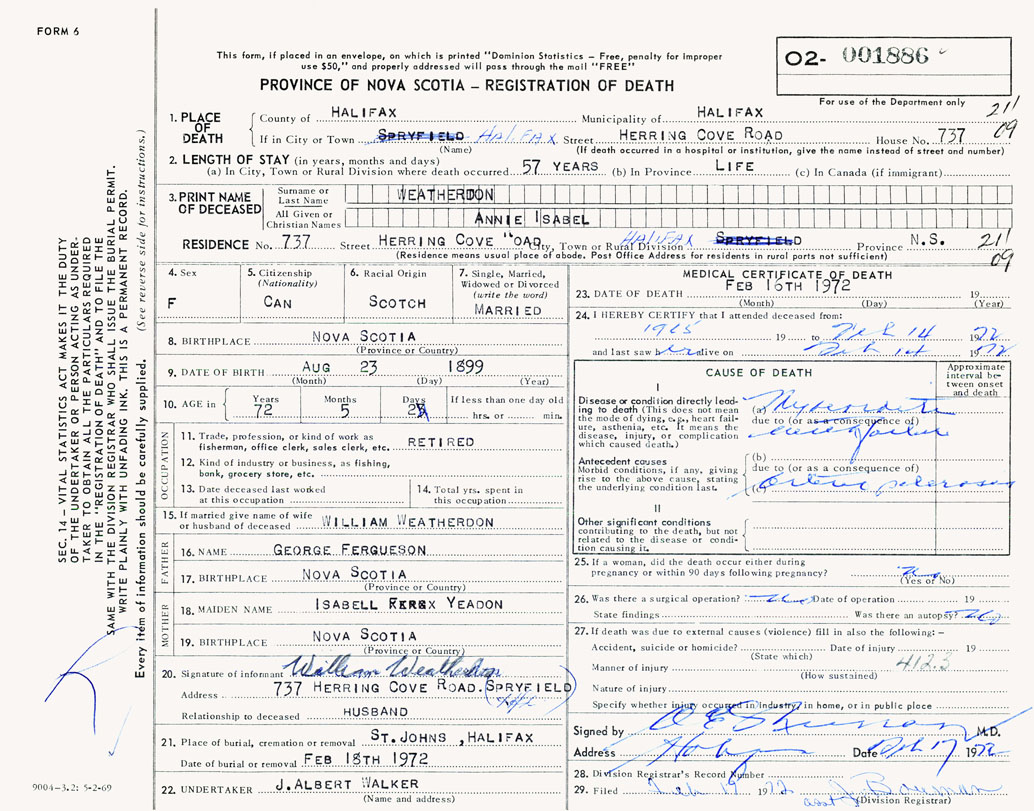 FORM 6
This form, if placed in an envelope, on which is printed "Dominion Statistics – Free, penalty for improper
use $50," and properly addressed will pass through the mail "FREE"
O2- 001886
PROVINCE OF NOVA SCOTIA – REGISTRATION OF DEATH
For use of the Department only
SEC. 14 – VITAL STATISTICS ACT MAKES IT THE DUTY
OF THE UNDERTAKER OR PERSON ACTING AS UNDER-
TAKER TO OBTAIN ALL THE PARTICULARS REQUIRED
IN THE "REGISTRATION OF DEATH" AND TO FILE THE
SAME WITH THE DIVISION REGISTRAR WHO SHALL ISSUE THE BURIAL PERMIT.
WRITE PLAINLY WITH UNFADING INK. THIS IS A PERMANENT RECORD.
Every item of information should be carefully supplied. (See reverse side for instructions.)
1. PLACE OF DEATH
County of HALIFAX Municipality of HALIFAX 211
If in City or Town SPRYFIELD Halifax Street HERRING COVE ROAD House No. 737 09
(Name) (If death occurred in a hospital or institution, give the name instead of street and number)
2. LENGTH OF STAY (in years, months and days)
(a) In City, Town or Rural Division where death occurred 57 YEARS (b) In Province LIFE (c) In Canada (if immigrant)
3. PRINT NAME OF DECEASED
Surname or Last Name WEATHERDON
All Given or Christian Names ANNIE ISABEL
RESIDENCE No. 737 Street HERRING COVE "OAD City, Town or Rural Division HALIFAX SPRYFIELD Province N.S. 211
(Residence means usual place of abode. Post Office Address for residents in rural parts not sufficient) 09
4. Sex
F
5. Citizenship
(Nationality)
CAN
6. Racial Origin
SCOTCH
7. Single, Married,
Widowed or Divorced
(write the word)
MARRIED
8. BIRTHPLACE NOVA SCOTIA
(Province or Country)
9. DATE OF BIRTH AUG 23 1899
(Month) (Day) (Year)
10. AGE in
Years Months Days If less than one day old
72 5 hrs. or min.
OCCUPATION
11. Trade, profession, or kind of work as
fisherman, office clerk, sales clerk, etc. RETIRED
12. Kind of industry or business, as fishing,
bank, grocery store, etc.
13. Date deceased last worked
at this occupation
14. Total yrs. spent in
this occupation
15. If married give name of wife
or husband of deceased WILLIAM WEATHERDON
FATHER
16. NAME GEORGE FERGUESON
17. BIRTHPLACE NOVA SCOTIA
(Province or Country)
MOTHER
18. MAIDEN NAME ISABELL YEADON
19. BIRTHPLACE NOVA SCOTIA
(Province or Country)
20. Signature of informant William Weatherdon
Address 737 HERRING COVE ROAD. SPRYFIELD
Relationship to deceased HUSBAND
21. Place of burial, cremation or removal ST. JOHNS , HALIFAX
Date of burial or removal FEB 18TH 1972
22. UNDERTAKER J. ALBERT WALKER
(Name and address)
9004-3.2: 5-2-69
MEDICAL CERTIFICATE OF DEATH
23. DATE OF DEATH FEB 16TH 1972 19
(Month) (Day) (Year)
24. I HEREBY CERTIFY that I attended deceased from:
19 to Feb 14 1972
and last saw her alive on Feb 14 1972
CAUSE OF DEATH
Approximate
interval be-
tween onset
and death
I
Disease or condition directly lead-
ing to death (This does not mean
the mode of dying, e.g., heart fail-
ure, asthenia, etc. It means the
disease, injury, or complication
which caused death.)
(a)
due to (or as a consequence of)
Antecedent causes
Morbid conditions, if any, giving
rise to the above cause, stating
the underlying condition last.
(b)
due to (or as a consequence of)
(c)
II
Other significant conditions
contributing to the death, but not
related to the disease or condi-
tion causing it.
25. If a woman, did the death occur either during
pregnancy or within 90 days following pregnancy? no
(Yes or No)
26. Was there a surgical operation? no Date of operation 19
State findings Was there an autopsy? no
27. If death was due to external causes (violence) fill in also the following: –
Accident, suicide or homicide? Date of injury 19
(State which) 4123
Manner of injury
(How sustained)
Nature of injury
Specify whether injury occurred in industry, in home, or in public place
Signed by M.D.
Address Date Feb 17 1972
28. Division Registrar's Record Number
29. Filed Feb 17 1972
(Division Registrar)